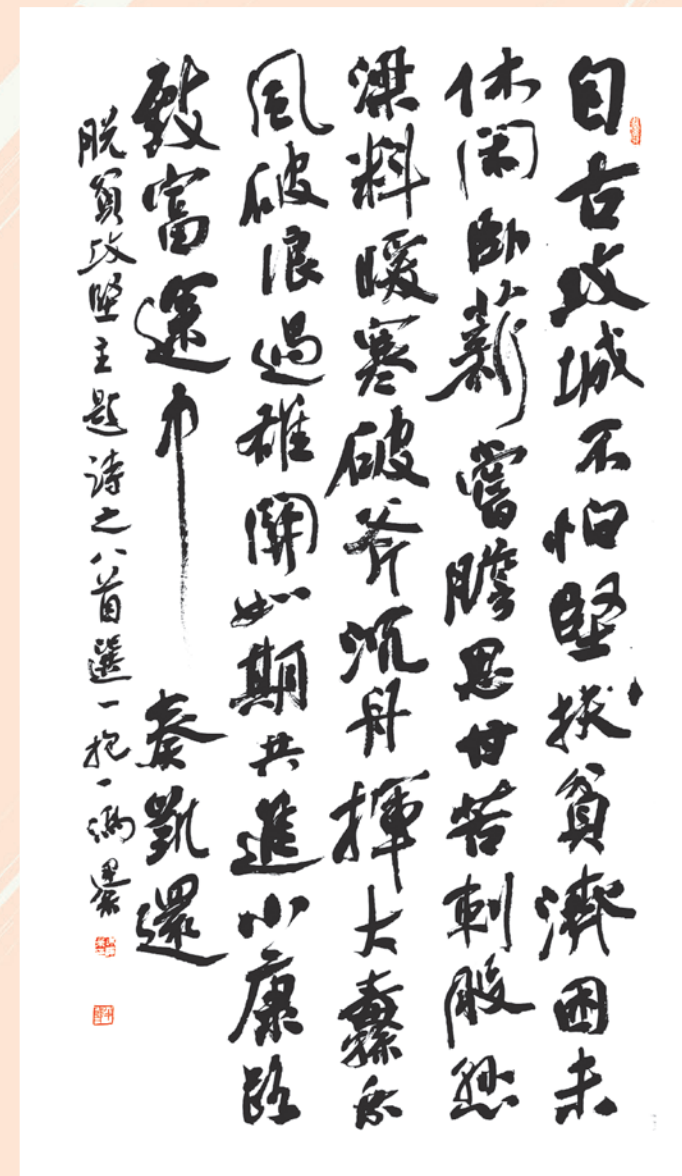 自古攻城不怕堅扶貧濟困未
休閑卧薪嘗膽思甘苦刺股懸
梁料暖寒破斧沉舟揮大纛乘
風破浪過雄關如期共進小康路
致富途中奏凱還
脱貧攻堅主題詩之八首選一抱一